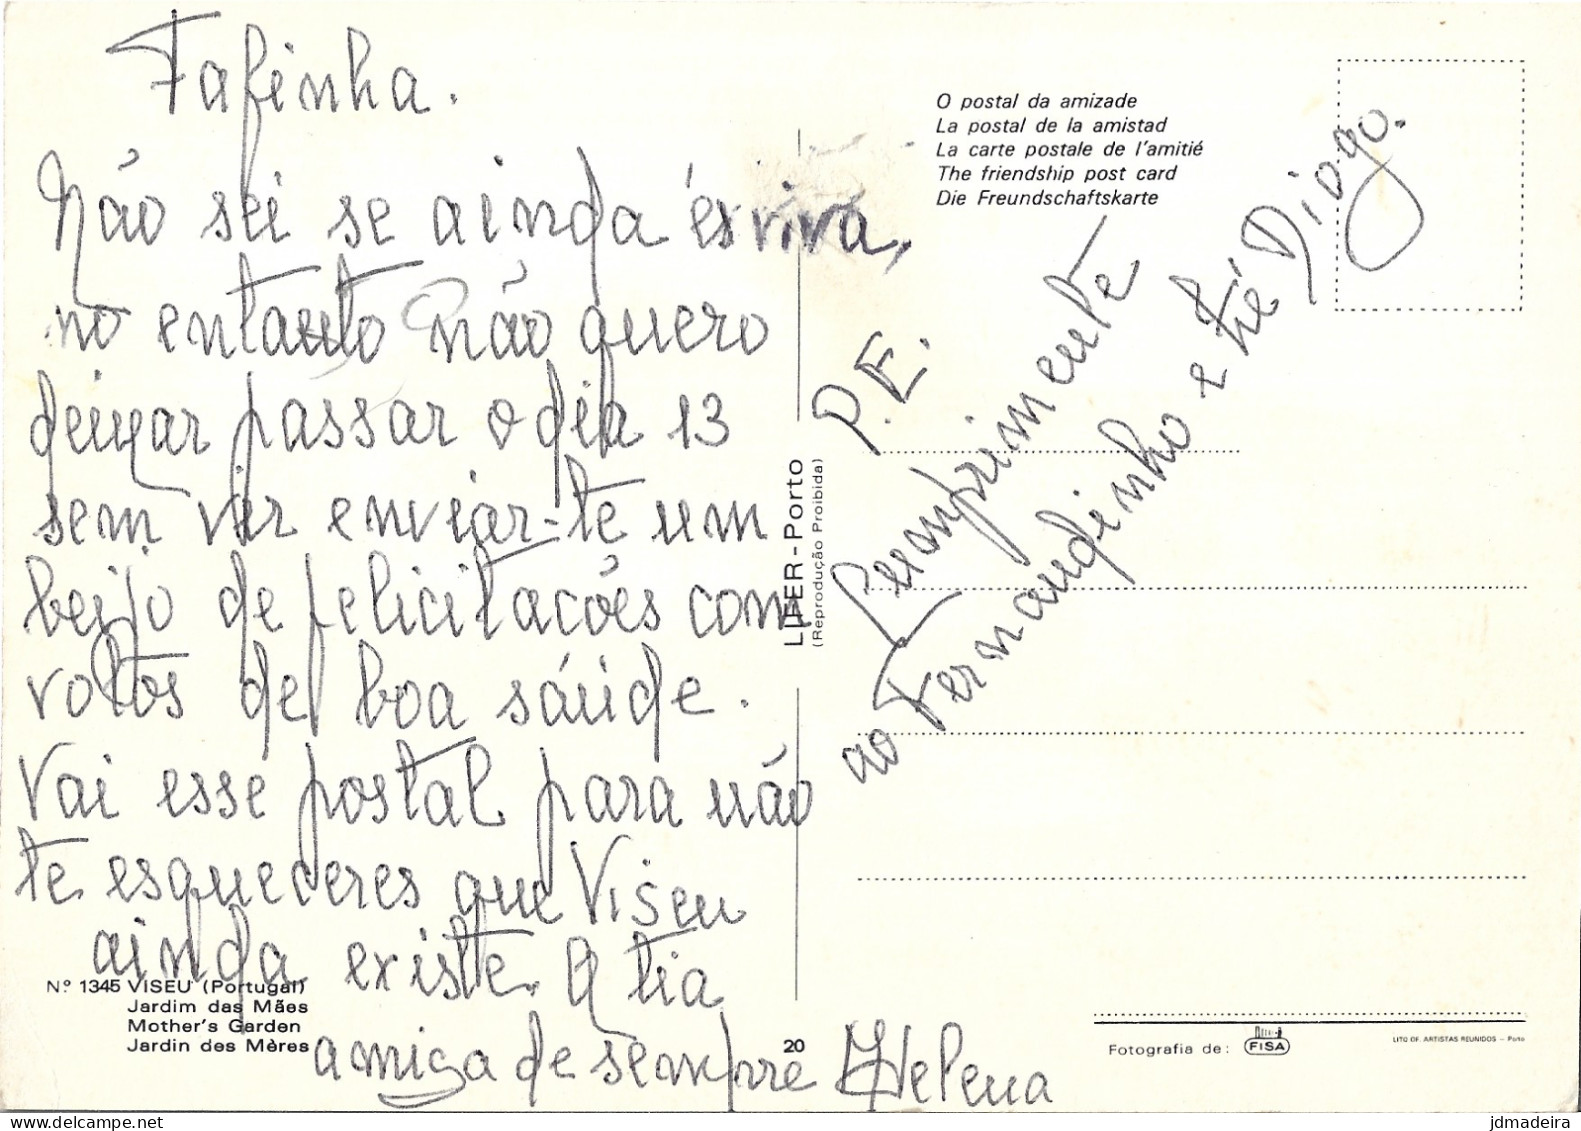 Fafinha.
Não sei se ainda és viva,
no entanto não quero
deixar passar o dia 13
sem vir enviar-te um
beijo de felicitacões com
votos de boa saúde.
Vai esse postal para não
te esqueceres que Viseu
ainda existe. A tia
amiga de sempre Helena
O postal da amizade
La postal de la amistad
La carte postale de l'amitié
The friendship post card
Die Freundschaftskarte
P.E.
Cumprimente
ao Fernandinho e Zé Diogo.
LIFER - Porto
(Reprodução Proibida)
Nº 1345 VISEU (Portugal)
Jardim das Mães
Mother's Garden
Jardin des Mères
20
Fotografia de: FISA
LITO OF. ARTISTAS REUNIDOS - Porto
jdmadeira